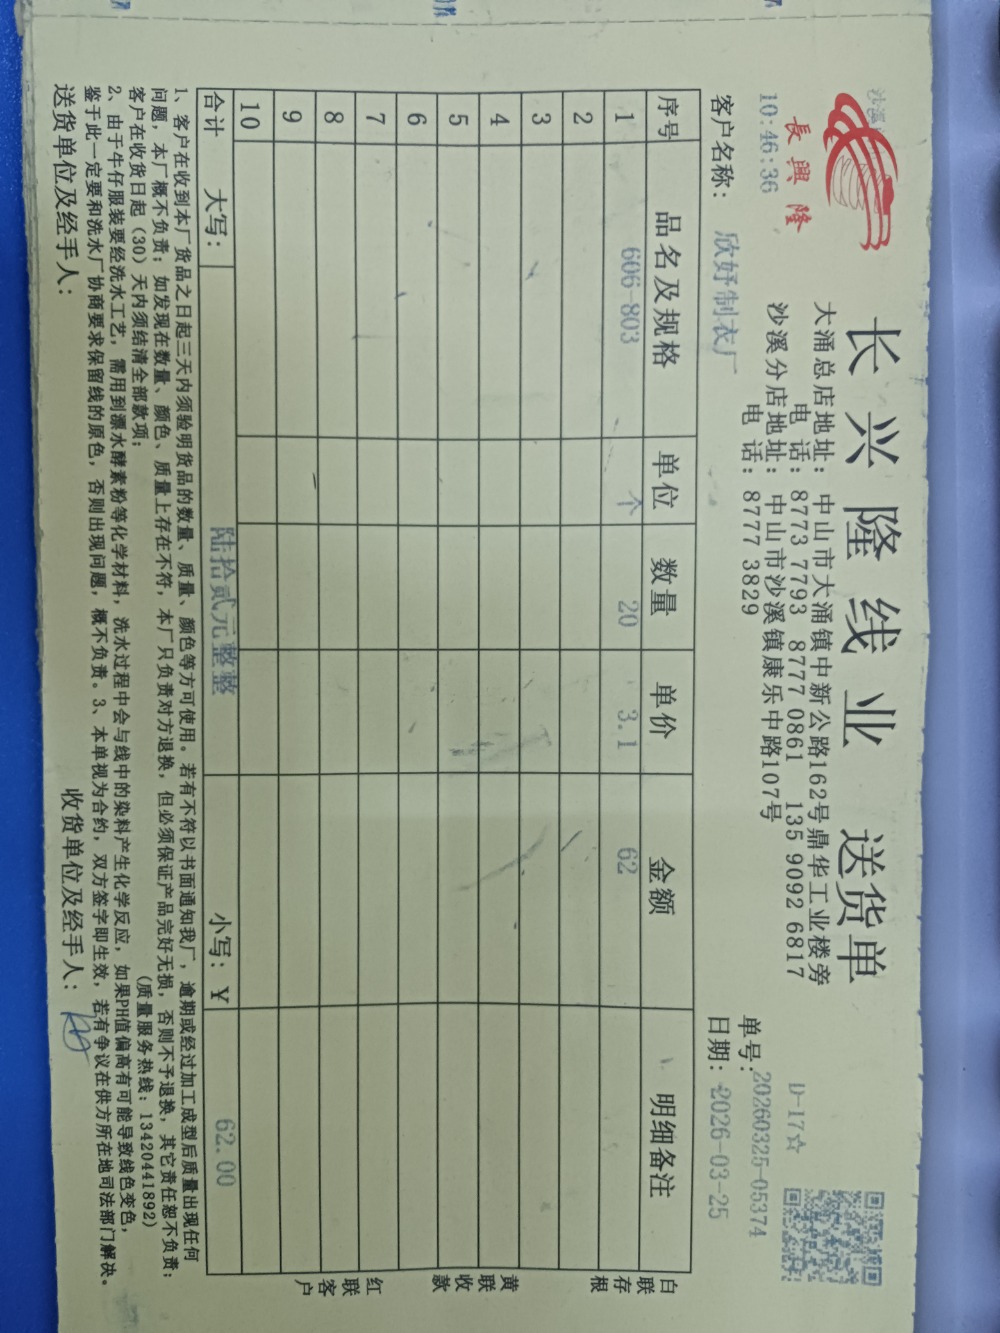 長興隆
长兴隆线业 送货单
D-17☆
大涌总店地址：中山市大涌镇中新公路162号鼎华工业楼旁
电 话：8773 7793 8777 0861 135 9092 6817
10:46:36
沙溪分店地址：中山市沙溪镇康乐中路107号
电 话：8777 3829
单号：20260325-05374
客户名称：欣妤制衣厂
日期：2026-03-25
序号 品名及规格 单位 数量 单价 金额 明细备注
1 606-803 个 20 3.1 62
2
3
4
5
6
7
8
9
10
合计 大写：陆拾贰元整整 小写：￥ 62.00
白联存根
黄联收款
红联客户
1、客户在收到本厂货品之日起三天内须验明货品的数量、质量、颜色等方可使用。若有不符以书面通知我厂，逾期或经过加工成型后质量出现任何
问题，本厂概不负责；如发现在数量、颜色、质量上存在不符，本厂只负责对方退换，但必须保证产品完好无损，否则不予退换，其它责任恕不负责；
客户在收货日起（30）天内须结清全部款项；
(质量服务热线：13420441892)
2、由于牛仔服装要经洗水工艺，需用到漂水酵素粉等化学材料，洗水过程中会与线中的染料产生化学反应，如果PH值偏高有可能导致线色变色，
鉴于此一定要和洗水厂协商要求保留线的原色，否则出现问题，概不负责。3、本单视为合约，双方签字即生效，若有争议在供方所在地司法部门解决。
送货单位及经手人：
收货单位及经手人：